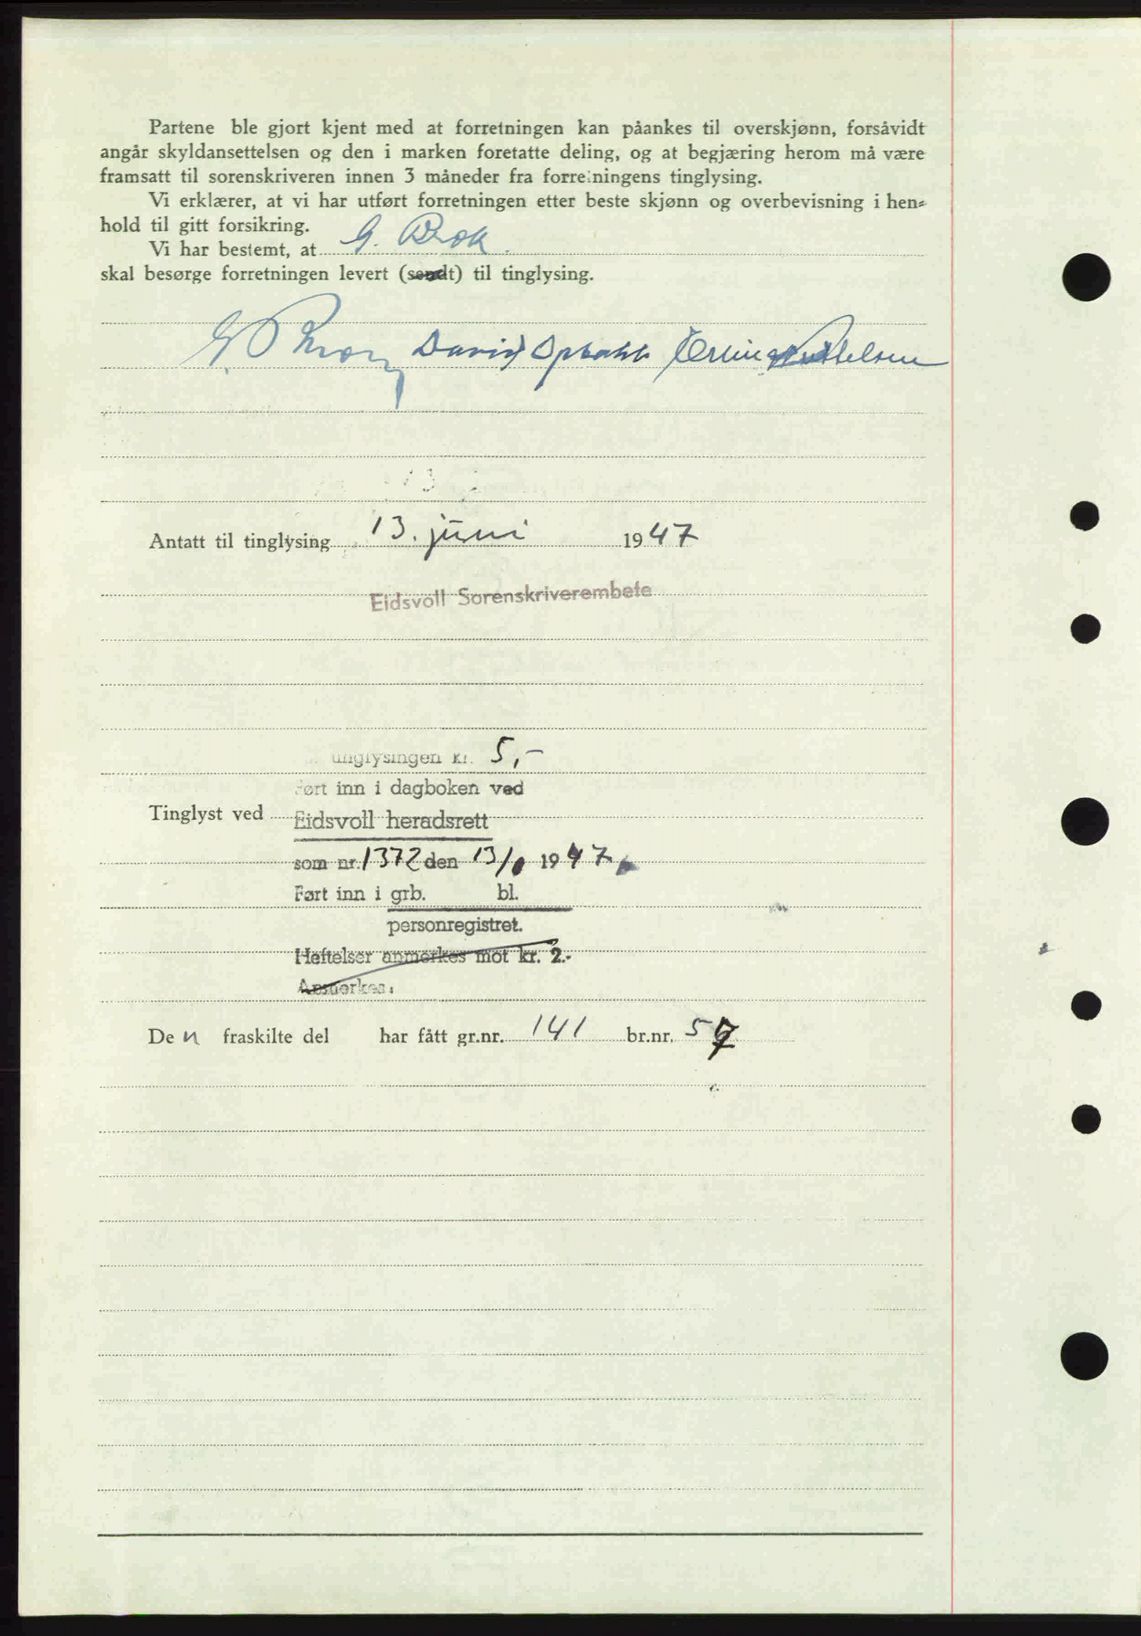 Partene ble gjort kjent med at forretningen kan påankes til overskjønn, forsåvidt
angår skyldansettelsen og den i marken foretatte deling, og at begjæring herom må være
framsatt til sorenskriveren innen 3 måneder fra forretningens tinglysing.
Vi erklærer, at vi har utført forretningen etter beste skjønn og overbevisning i hen-
hold til gitt forsikring.
Vi har bestemt, at G. Brok
skal besørge forretningen levert (sendt) til tinglysing.
David
Antatt til tinglysing 13. juni 1947
Eidsvoll Sorenskriverembete
tinglysingen kr. 5,-
Ført inn i dagboken ved
Tinglyst ved Eidsvoll heradsrett
som nr. 1372 den 13/6 1947
Ført inn i grb. bl.
personregistret.
Heftelser anmerkes mot kr. 2.-
Anmerkes:
Den fraskilte del har fått gr.nr. 141 br.nr. 57